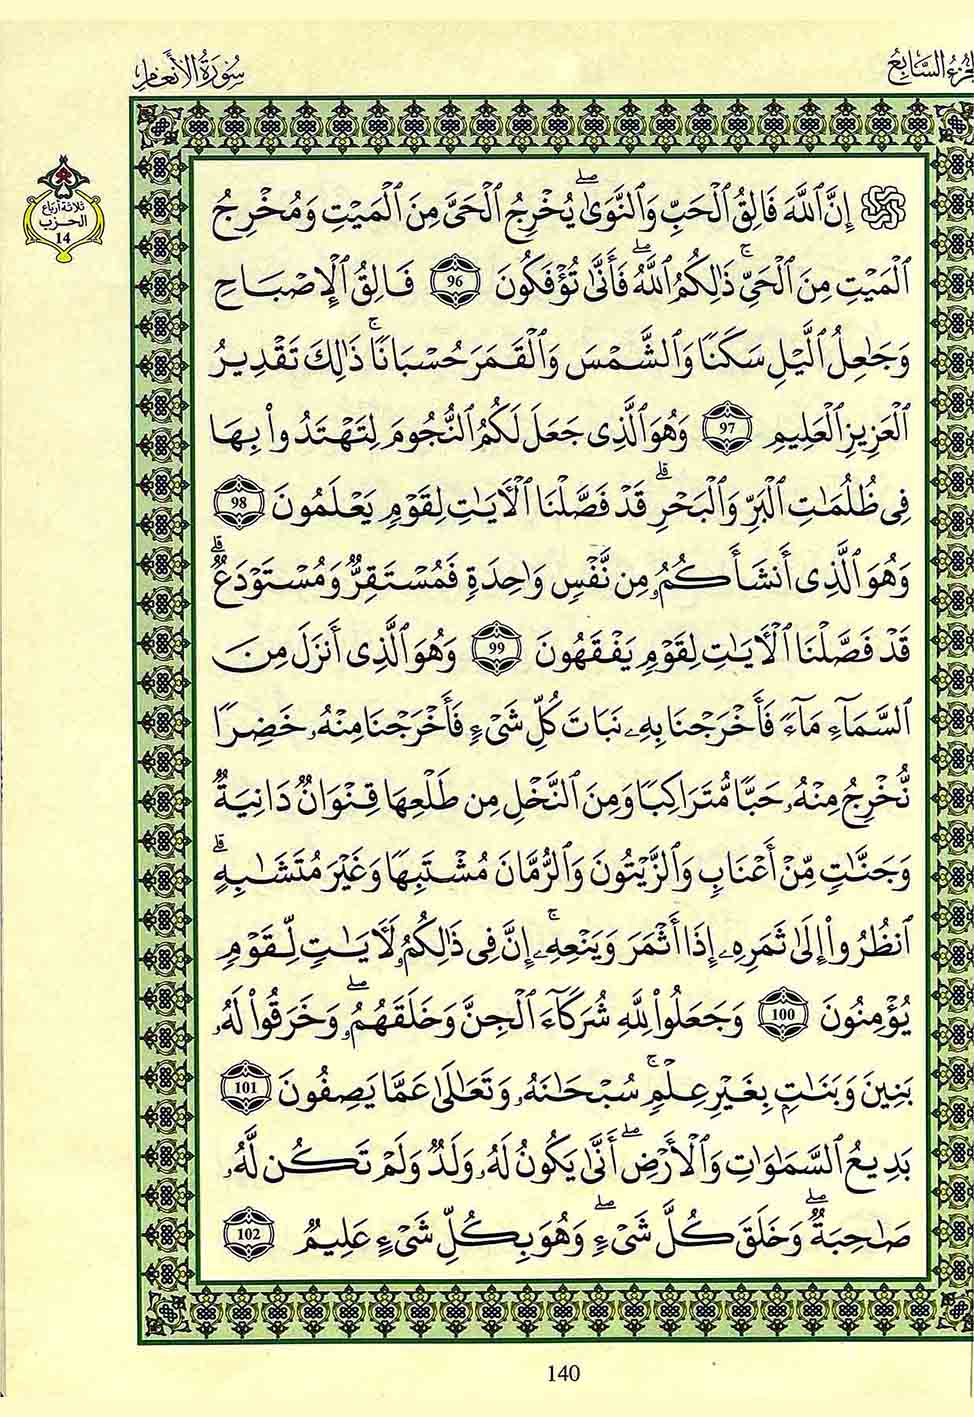 الجزء السابع
سُورَةُ الأَنْعَامِ
ثلاثة أرباع
الحزب
14
إِنَّ ٱللَّهَ فَالِقُ ٱلْحَبِّ وَٱلنَّوَىٰۖ يُخْرِجُ ٱلْحَىَّ مِنَ ٱلْمَيْتِ وَمُخْرِجُ
ٱلْمَيْتِ مِنَ ٱلْحَىِّۚ ذَٰلِكُمُ ٱللَّهُۖ فَأَنَّىٰ تُؤْفَكُونَ 96 فَالِقُ ٱلْإِصْبَاحِ
وَجَٰعِلُ ٱلَّيْلِ سَكَنًا وَٱلشَّمْسَ وَٱلْقَمَرَ حُسْبَانًاۚ ذَٰلِكَ تَقْدِيرُ
ٱلْعَزِيزِ ٱلْعَلِيمِ 97 وَهُوَ ٱلَّذِى جَعَلَ لَكُمُ ٱلنُّجُومَ لِتَهْتَدُوا۟ بِهَا
فِى ظُلُمَٰتِ ٱلْبَرِّ وَٱلْبَحْرِۗ قَدْ فَصَّلْنَا ٱلْأٓيَٰتِ لِقَوْمٍ يَعْلَمُونَ 98
وَهُوَ ٱلَّذِى أَنشَأَكُمُۥ مِن نَّفْسٍ وَٰحِدَةٍ فَمُسْتَقِرٌّ وَمُسْتَوْدَعٌۗ
قَدْ فَصَّلْنَا ٱلْأٓيَٰتِ لِقَوْمٍ يَفْقَهُونَ 99 وَهُوَ ٱلَّذِى أَنزَلَ مِنَ
ٱلسَّمَآءِ مَآءً فَأَخْرَجْنَا بِهِۦ نَبَاتَ كُلِّ شَىْءٍ فَأَخْرَجْنَا مِنْهُۥ خَضِرًا
نُّخْرِجُ مِنْهُۥ حَبًّا مُّتَرَاكِبًا وَمِنَ ٱلنَّخْلِ مِن طَلْعِهَا قِنْوَانٌ دَانِيَةٌ
وَجَنَّٰتٍ مِّنْ أَعْنَابٍ وَٱلزَّيْتُونَ وَٱلرُّمَّانَ مُشْتَبِهًا وَغَيْرَ مُتَشَٰبِهٍۗ
ٱنظُرُوا۟ إِلَىٰ ثَمَرِهِۦ إِذَا أَثْمَرَ وَيَنْعِهِۦۚ إِنَّ فِى ذَٰلِكُمُۥ لَأٓيَٰتٍ لِّقَوْمٍ
يُؤْمِنُونَ 100 وَجَعَلُوا۟ لِلَّهِ شُرَكَآءَ ٱلْجِنَّ وَخَلَقَهُمُۥۖ وَخَرَقُوا۟ لَهُۥ
بَنِينَ وَبَنَٰتٍۭ بِغَيْرِ عِلْمٍۚ سُبْحَٰنَهُۥ وَتَعَٰلَىٰ عَمَّا يَصِفُونَ 101
بَدِيعُ ٱلسَّمَٰوَٰتِ وَٱلْأَرْضِۖ أَنَّىٰ يَكُونُ لَهُۥ وَلَدٌ وَلَمْ تَكُن لَّهُۥ
صَٰحِبَةٌۖ وَخَلَقَ كُلَّ شَىْءٍۖ وَهُوَ بِكُلِّ شَىْءٍ عَلِيمٌ 102
140